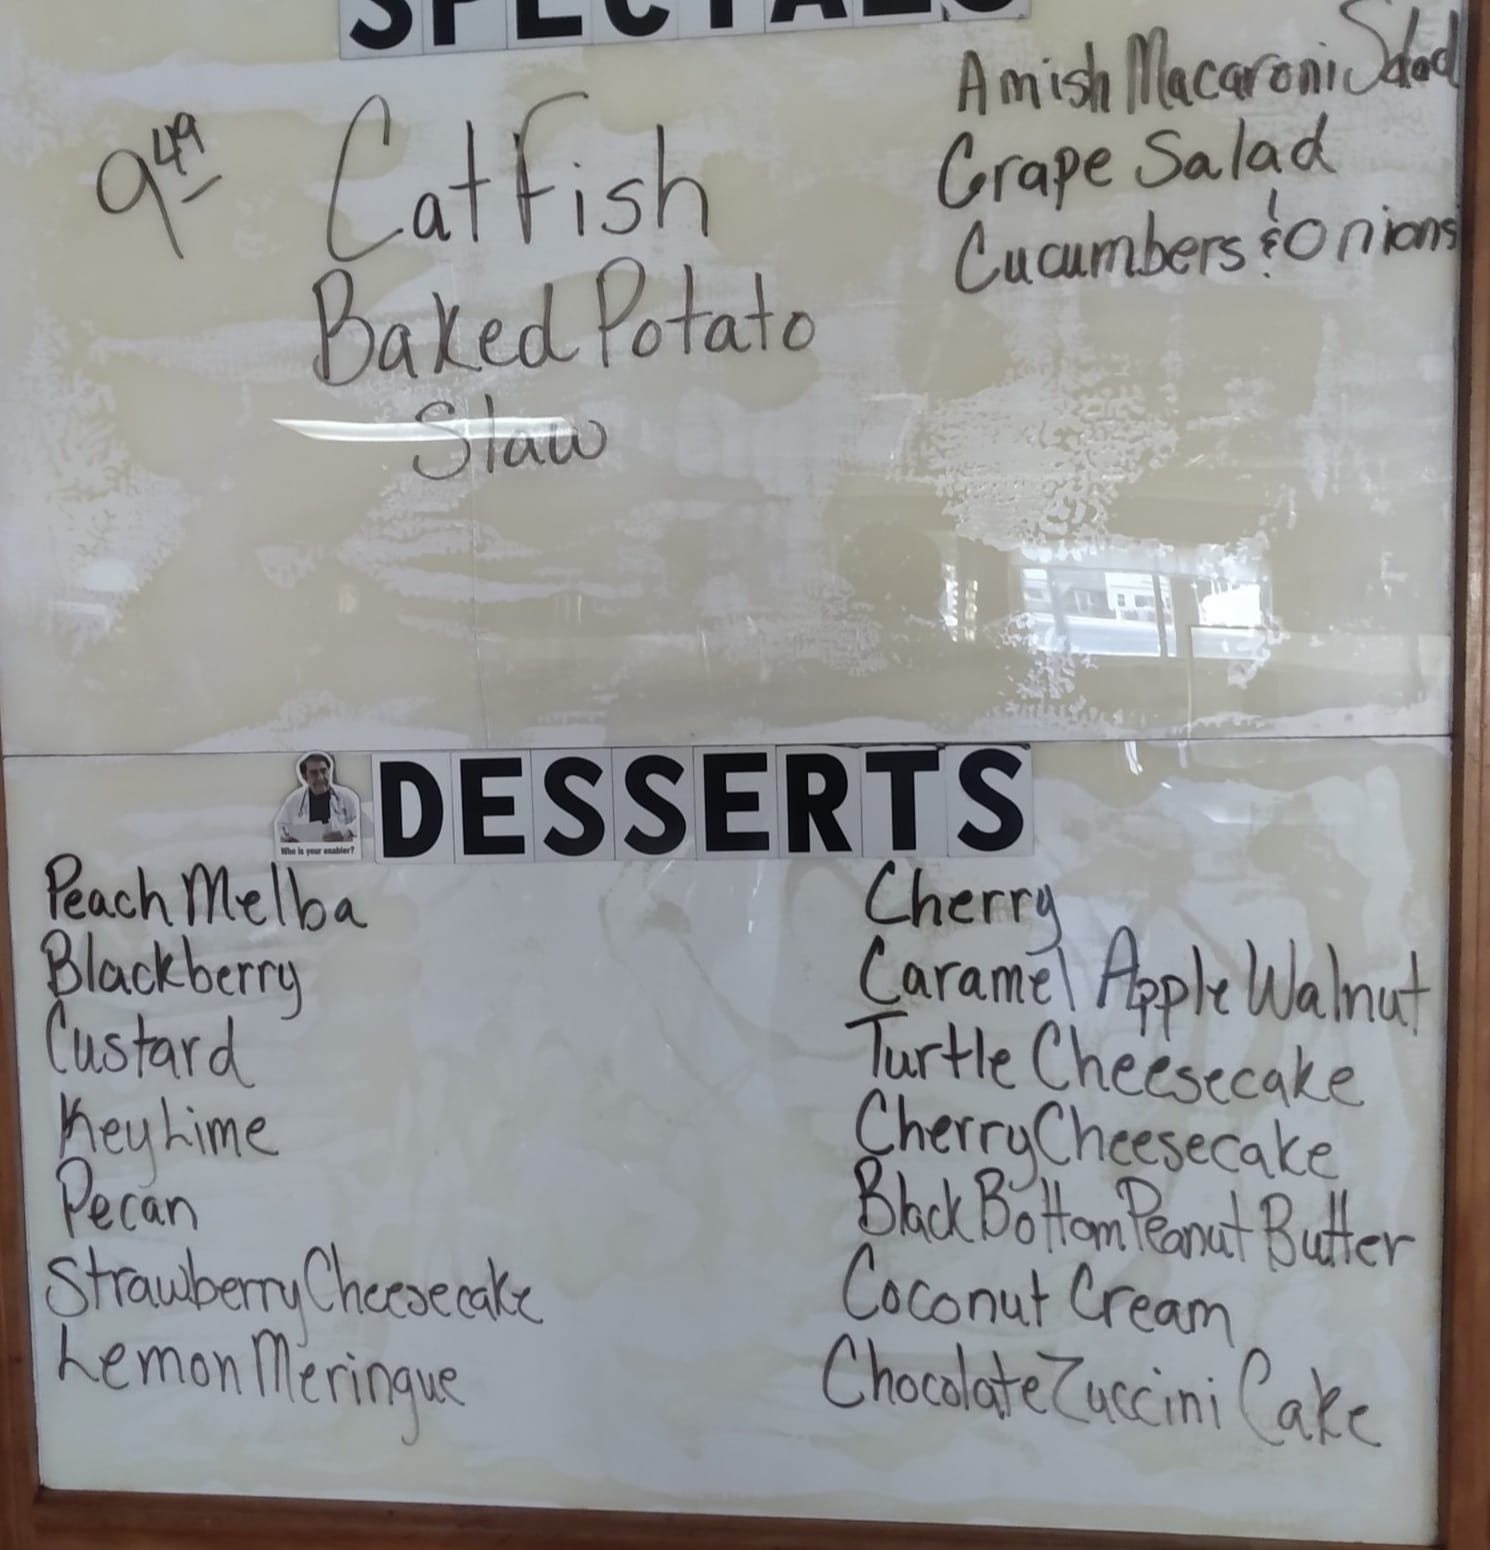 SPECIALS
9.49
Catfish
Baked Potato
Slaw
Amish Macaroni Salad
Grape Salad
Cucumbers & Onions
DESSERTS
Who is your enabler?
Peach Melba
Blackberry
Custard
Key Lime
Pecan
Strawberry Cheesecake
Lemon Meringue
Cherry
Caramel Apple Walnut
Turtle Cheesecake
Cherry Cheesecake
Black Bottom Peanut Butter
Coconut Cream
Chocolate Zuccini Cake